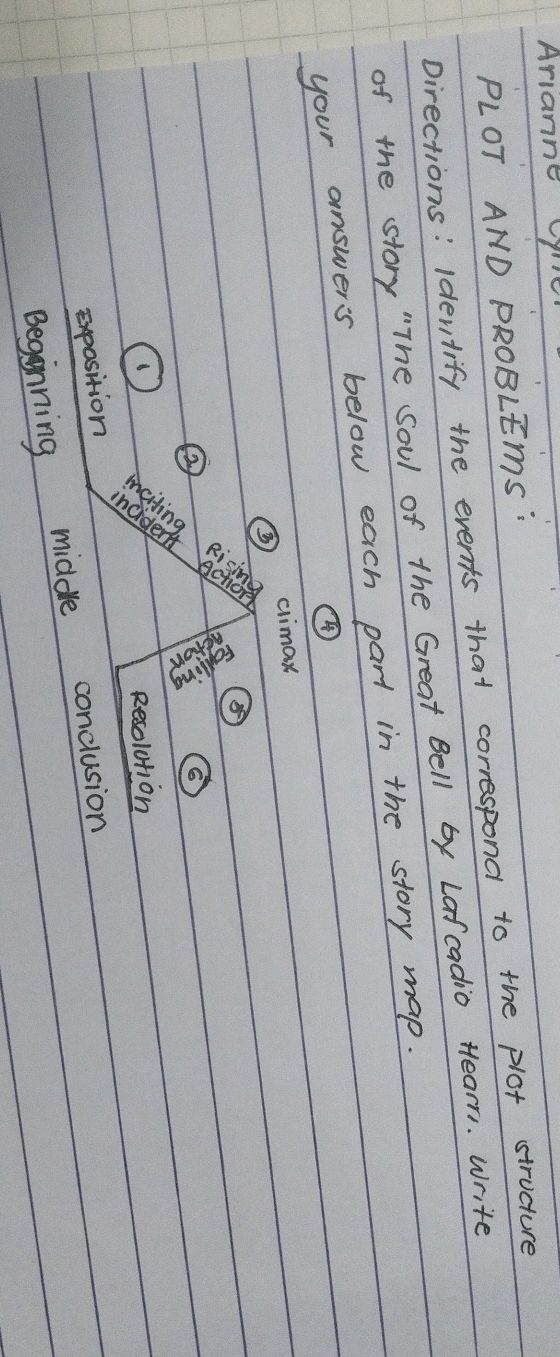 Arianne
PLOT AND PROBLEMS:
Directions: Identify the events that correspond to the plot structure
of the story "The Soul of the Great Bell by Lafcadio Hearn. Write
your answers below each part in the story map.
④
③ climax
② Rising Action ⑤
① inciting incident ⑥
Exposition Resolution
Beginning middle conclusion